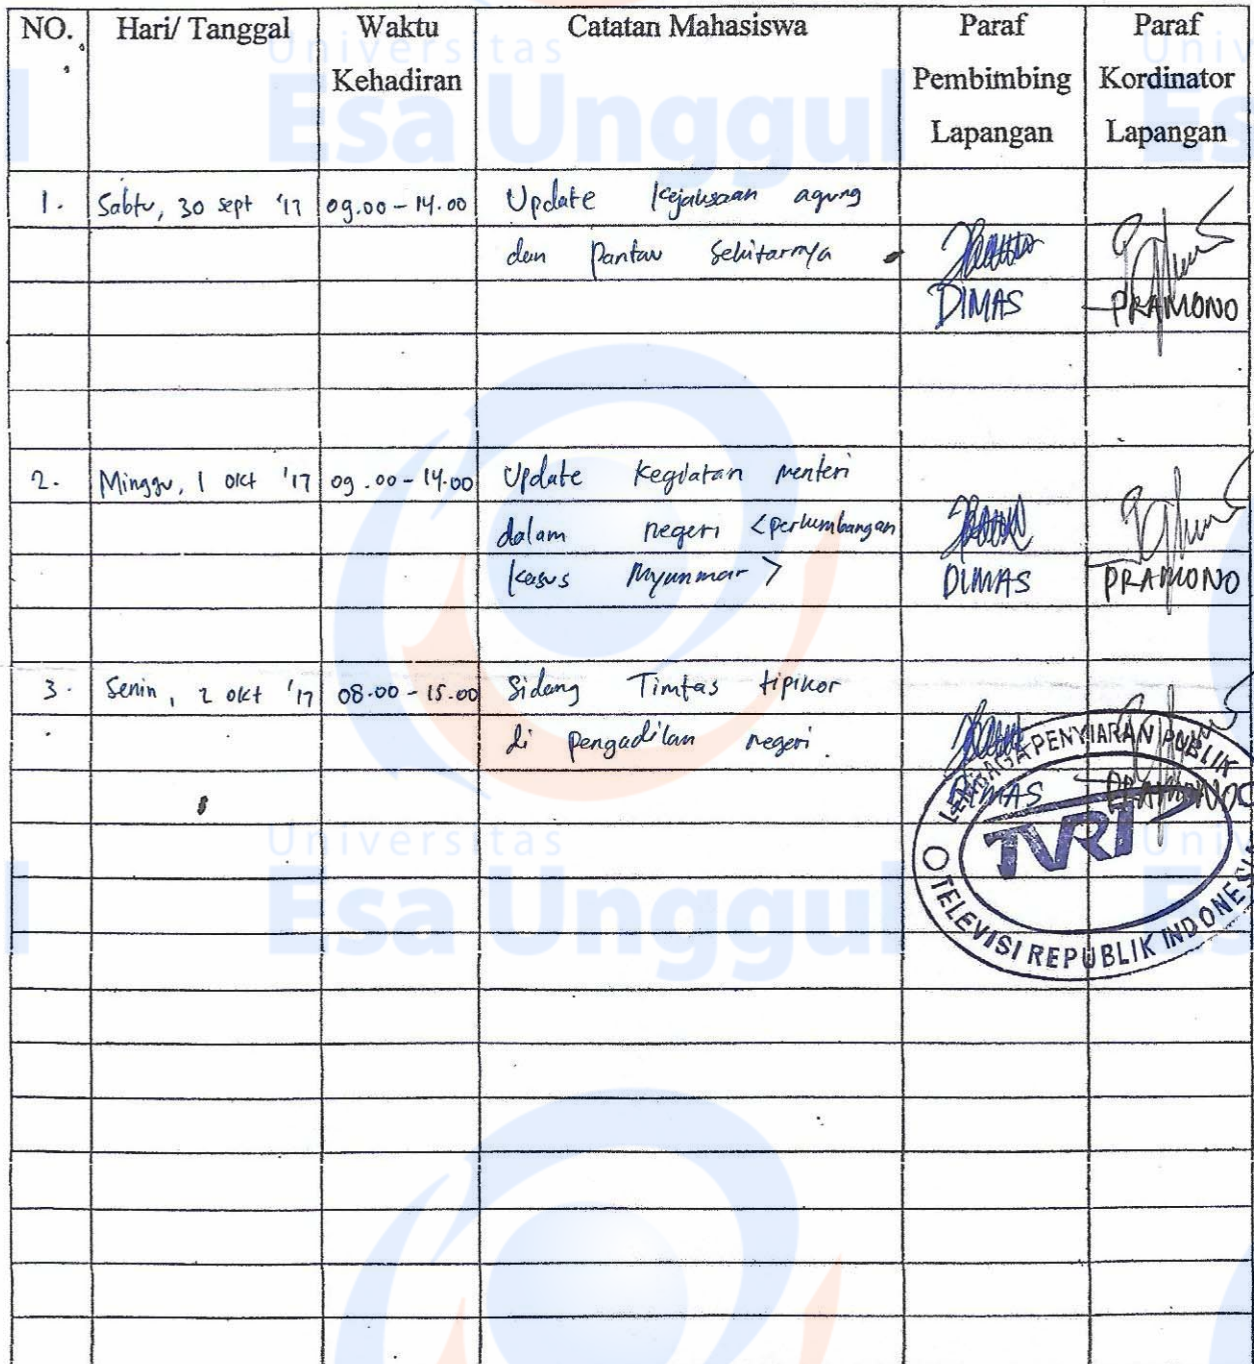 NO. Hari/ Tanggal Waktu Kehadiran Catatan Mahasiswa Paraf Pembimbing Lapangan Paraf Kordinator Lapangan
1. Sabtu, 30 sept '17 09.00 - 14.00 Update Kejaksaan agung
dan Pantau Sekitarnya
DIMAS PRAMONO
2. Minggu, 1 okt '17 09.00 - 14.00 Update Kegiatan menteri
dalam negeri <perkembangan
kasus Myanmar>
DIMAS PRAMONO
3. Senin, 2 okt '17 08.00 - 15.00 Sidang Timtas tipikor
di pengadilan negeri.
DIMAS PRAMONO
LEMBAGA PENYIARAN PUBLIK
TVRI
TELEVISI REPUBLIK INDONESIA
Universitas
Esa Unggul
Universitas
Esa Unggul